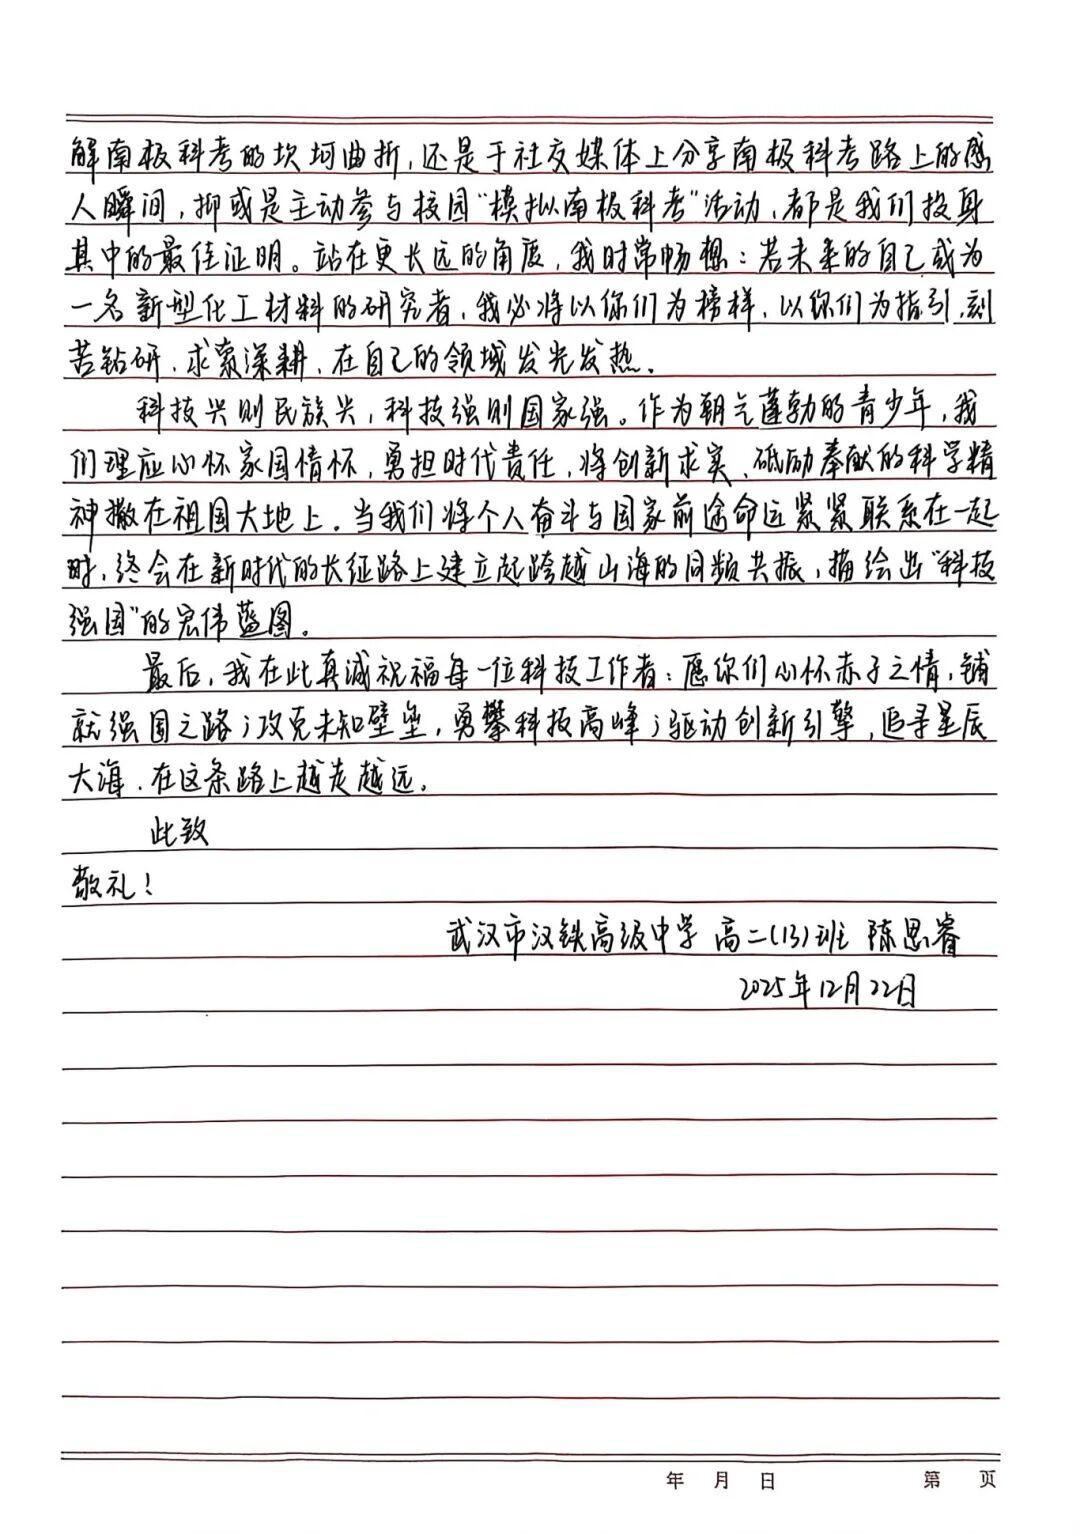 解南极科考的坎坷曲折，还是于社交媒体上分享南极科考路上的感
人瞬间，抑或是主动参与校园“模拟南极科考”活动，都是我们投身
其中的最佳证明。站在更长远的角度，我时常畅想：若未来的自己成为
一名新型化工材料的研究者，我必将以你们为榜样，以你们为指引，刻
苦钻研，求索深耕，在自己的领域发光发热。
科技兴则民族兴，科技强则国家强。作为朝气蓬勃的青少年，我
们理应心怀家国情怀，勇担时代责任，将创新求实、砥砺奉献的科学精
神撒在祖国大地上。当我们将个人奋斗与国家前途命运紧紧联系在一起
时，终会在新时代的长征路上建立起跨越山海的同频共振，描绘出“科技
强国”的宏伟蓝图。
最后，我在此真诚祝福每一位科技工作者：愿你们心怀赤子之情，铺
就强国之路；攻克未知壁垒，勇攀科技高峰；驱动创新引擎，追寻星辰
大海，在这条路上越走越远。
此致
敬礼！
武汉市汉铁高级中学 高二(13)班 陈思睿
2025年12月22日
年 月 日 第 页